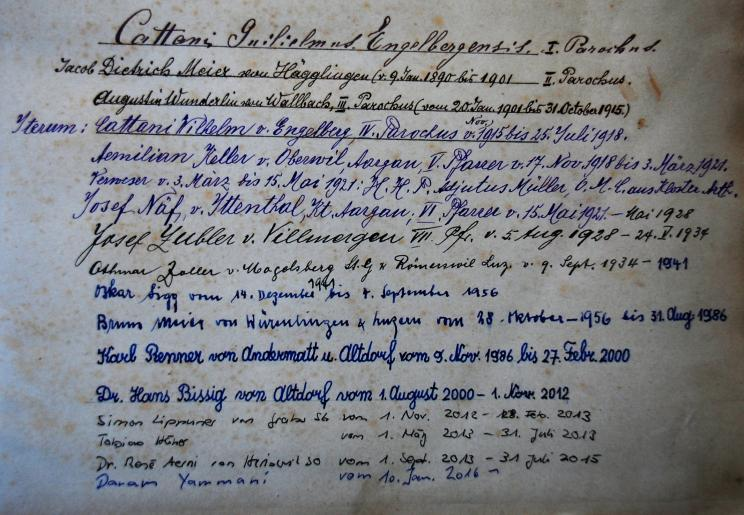 Cattani Guilielmus Engelbergensis. I. Parochus.
Jacob Dietrich Meier von Hägglingen (v. 9. Jan. 1890 bis 1901 — II. Parochus.
Augustin Wunderlin von Wallbach, III. Parochus (vom 20. Jan. 1901 bis 31 October 1915.)
Iterum: Cattani Wilhelm v. Engelberg, IV. Parochus v. Nov. 1915 bis 25. Juli 1918.
Aemilian Keller v. Oberwil, Aargau, V. Pfarrer v. 17. Nov. 1918 bis 3. März 1921.
Verweser v. 3. März bis 15. Mai 1921: H. H. P. Adjutus Müller, O. M. C. aus Kloster Arth.
Josef Näf, v. Ittenthal, Kt. Aargau, VI. Pfarrer v. 15. Mai 1921 - Mai 1928
Josef Zubler v. Villmergen VII. Pf. v. 5. Aug. 1928 - 24. V. 1934
Othmar Zoller v. Mogelsberg St. G. & Römerswil Luz. v. 9. Sept. 1934 - 1941
Oskar Sigg vom 14. Dezember 1941 bis 7. September 1956
Bruno Meier von Würenlingen & Luzern vom 28. Oktober - 1956 bis 31. Aug. 1986
Karl Renner von Andermatt u. Altdorf vom 9. Nov. 1986 bis 27. Febr. 2000
Dr. Hans Bissig von Altdorf vom 1. August 2000 - 1. Nov. 2012
Simon von Grabs SG vom 1. Nov. 2012 - 28. Feb. 2013
Tobias vom 1. März 2013 - 31. Juli 2013
Dr. René Aerni von SO vom 1. Sept. 2013 - 31 Juli 2015
Danam Yammani vom 10. Jan. 2016 -